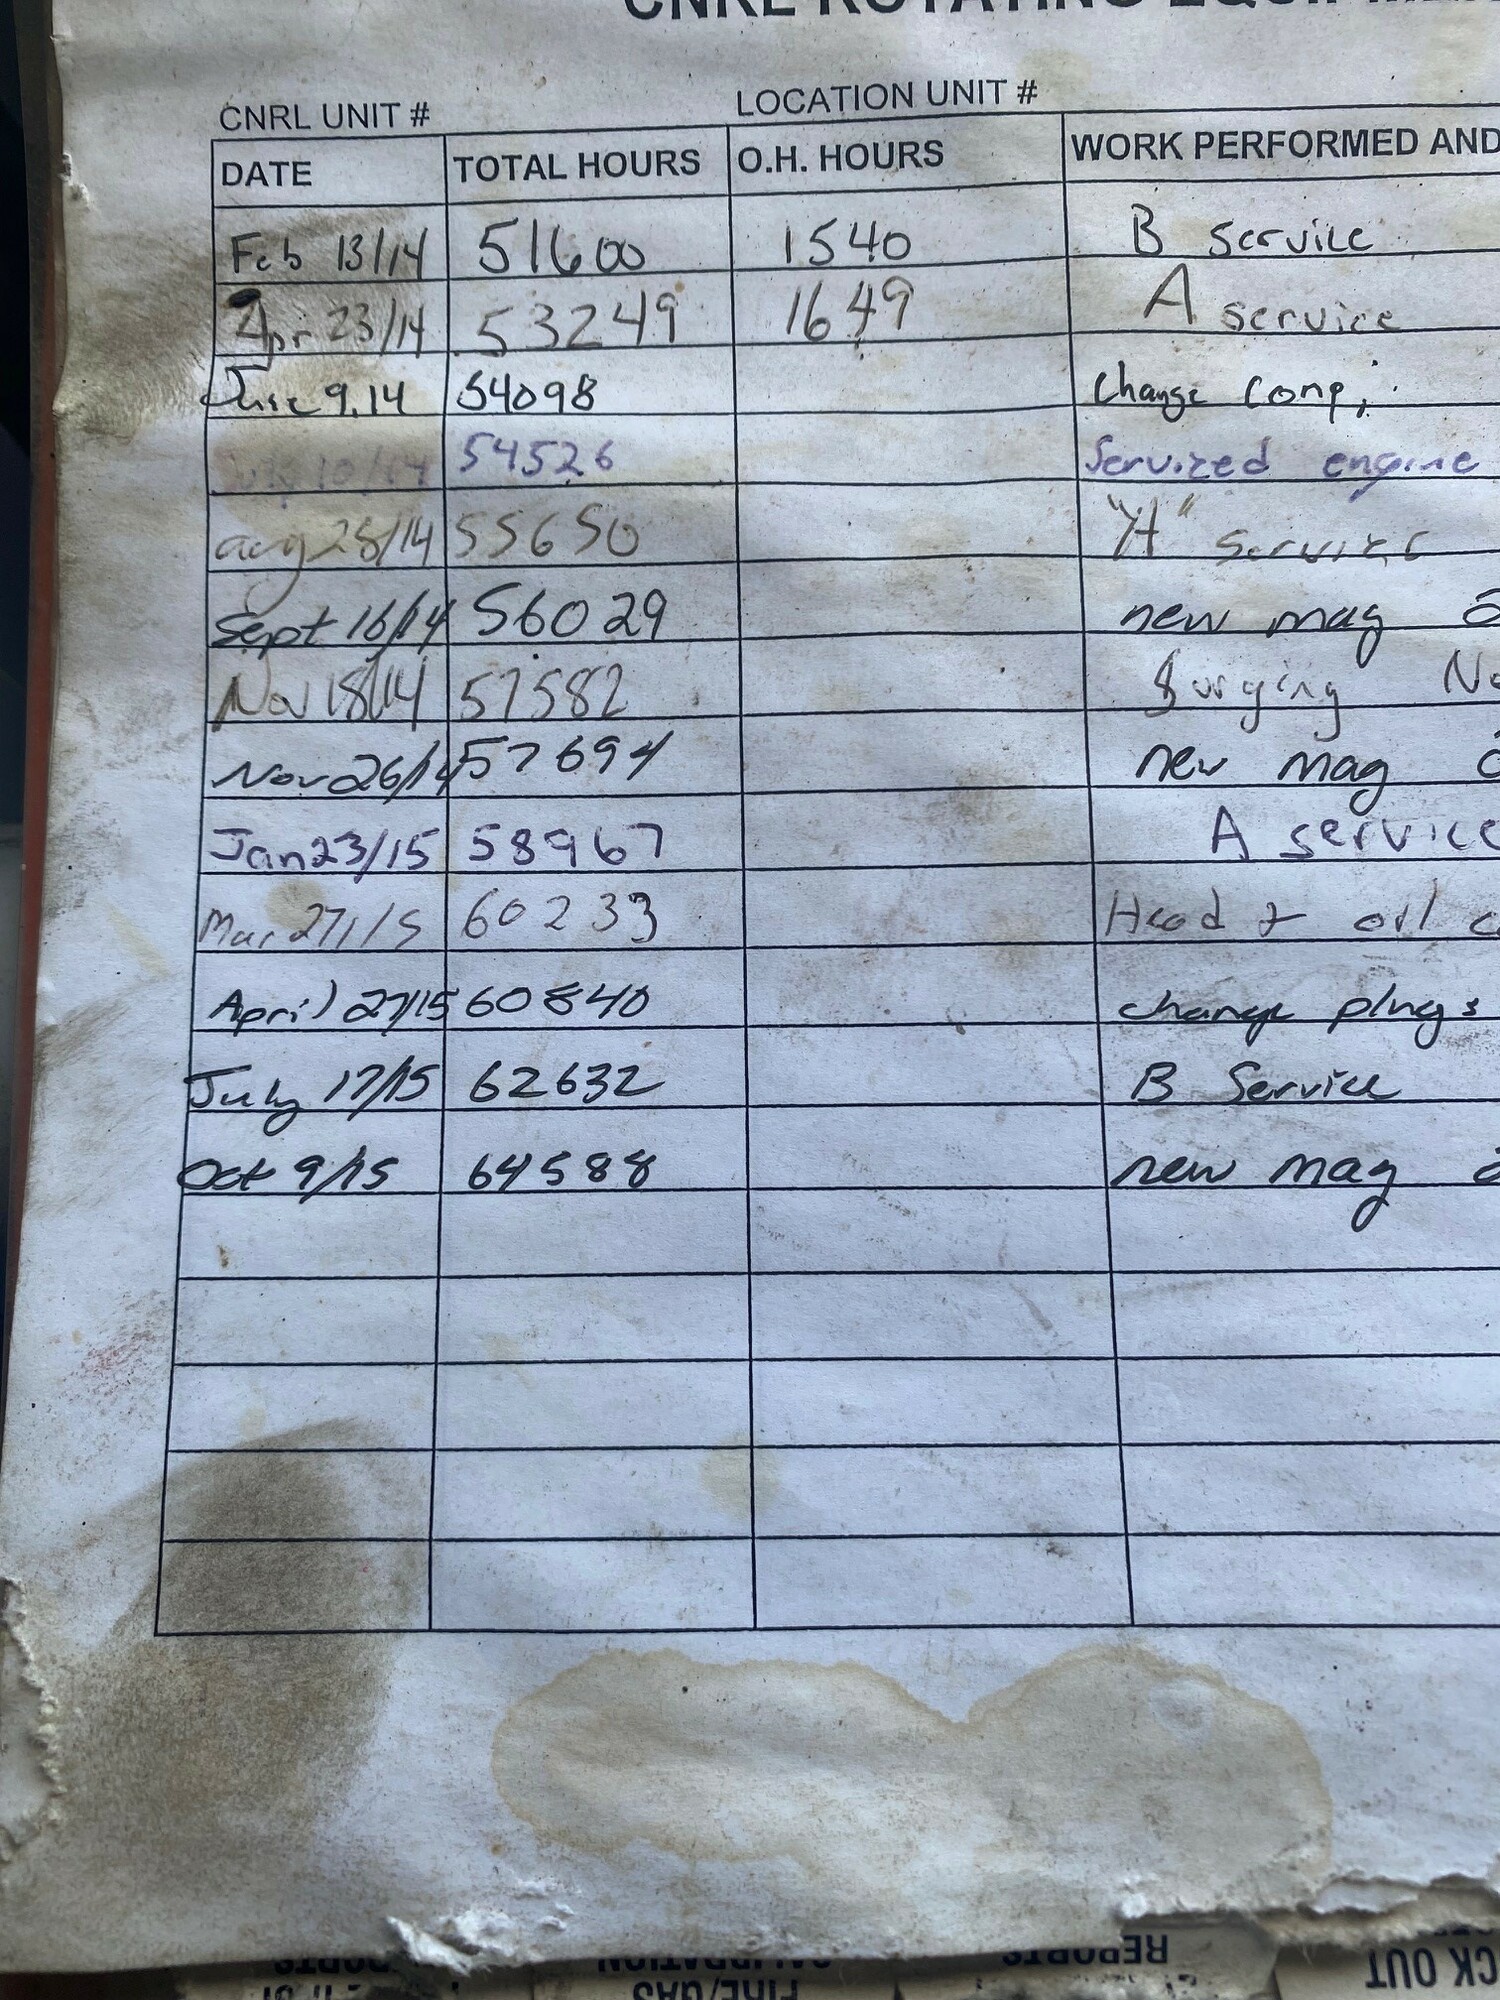 CNRL ROTATING
CNRL UNIT # LOCATION UNIT #
DATE TOTAL HOURS O.H. HOURS WORK PERFORMED AND
Feb 13/14 51600 1540 B Service
Apr 23/14 53249 1649 A service
June 9.14 54098 Change Comp,
10/14 54526 Serviced engine
aug 28/14 55650 "A" Service
Sept 16/14 56029 new mag
Nov 18/14 57582 Surging
Nov 26/14 57694 new mag
Jan 23/15 58967 A service
Mar 27/15 60233 Head & oil
April 27/15 60840 change plugs
July 17/15 62632 B Service
Oct 9/15 64588 new mag
REPORTS
FIRE/GAS
CK OUT